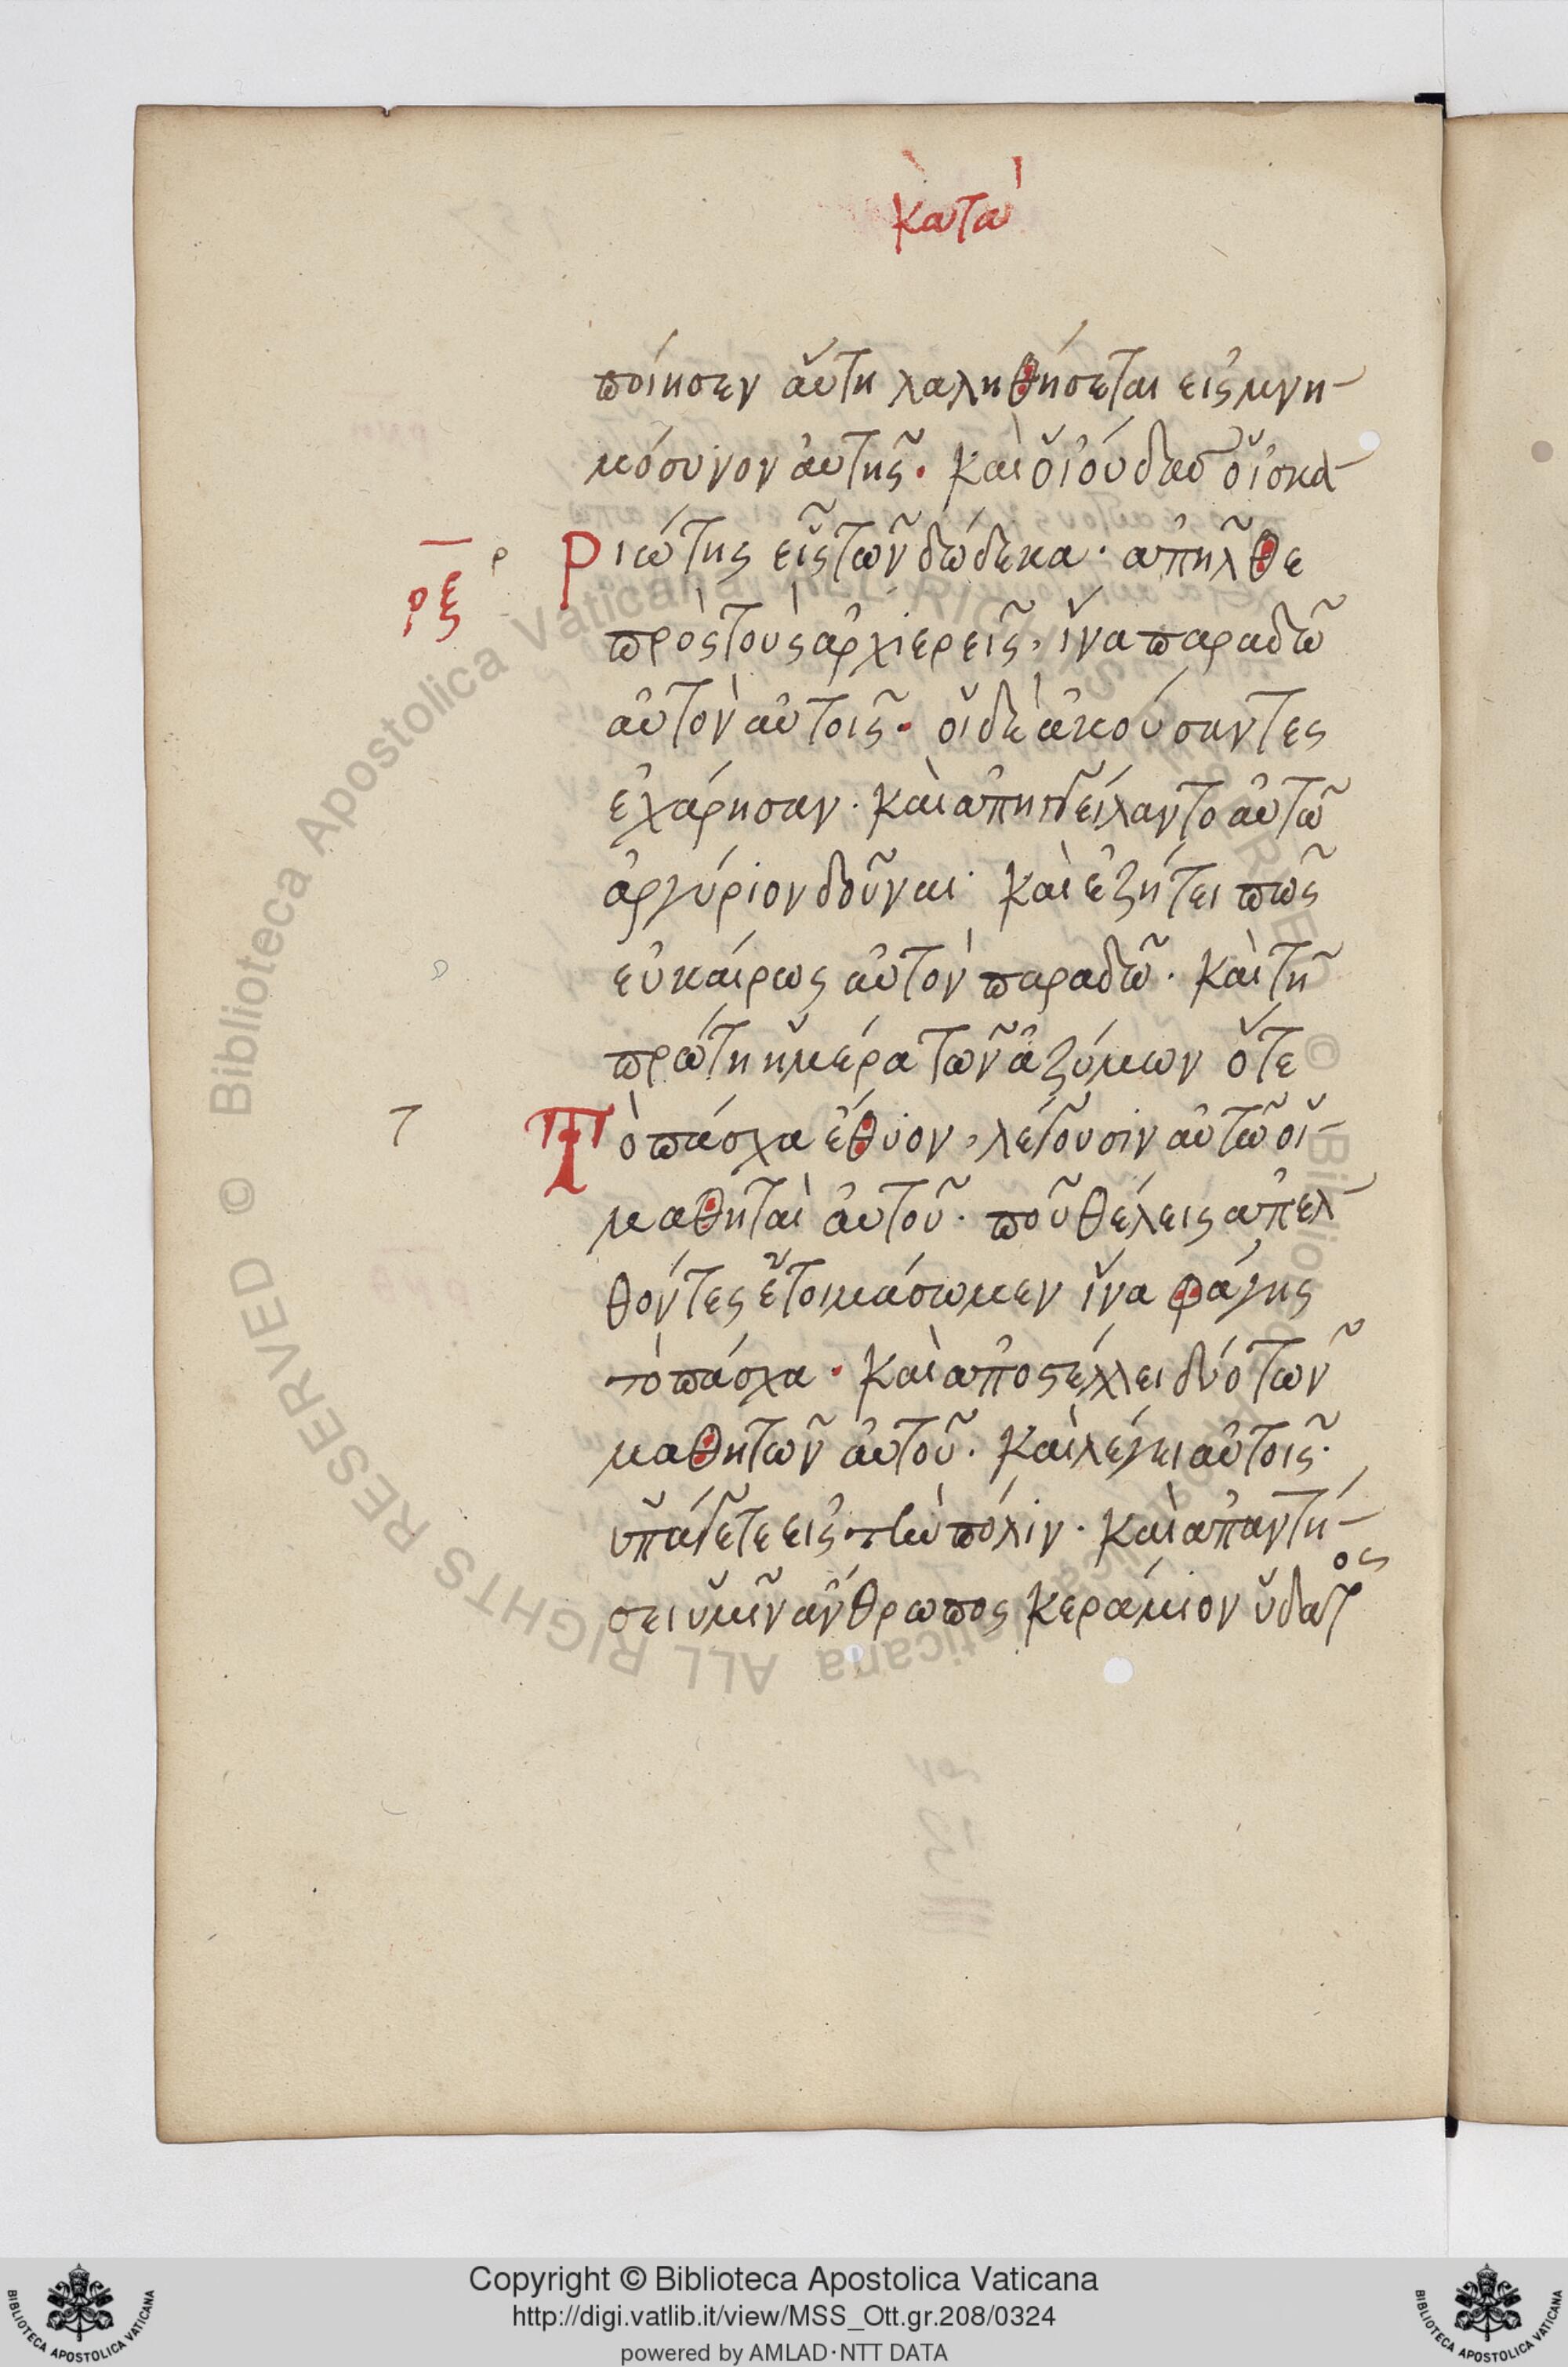 κατὰ
ποίησεν αὕτη λαληθήσεται εἰς μνη-
μόσυνον αὐτῆς. καὶ ὁ ἰούδας ὁ ἰσκα-
ρξ ρ Ριώτης εἷς τῶν δώδεκα· ἀπῆλθε
πρὸς τοὺς ἀρχιερεῖς, ἵνα παραδῶ
αὐτὸν αὐτοῖς. οἱ δὲ ἀκούσαντες
ἐχάρησαν. καὶ ἀπηγγείλαντο αὐτῶ
ἀργύριον δοῦναι· καὶ ἐζήτει πῶς
εὐκαίρως αὐτὸν παραδῶ. καὶ τῆ
πρώτη ἡμέρα τῶν ἀζύμων ὅτε
τ Τὸ πάσχα ἔθυον, λέγουσιν αὐτῶ οἱ-
μαθηταὶ αὐτοῦ. ποῦ θέλεις ἀπελ-
θόντες ἑτοιμάσωμεν ἵνα φάγης
τὸ πάσχα. καὶ ἀποστέλλει δύο τῶν
μαθητῶν αὐτοῦ. καὶ λέγει αὐτοῖς·
ὑπάγετε εἰς τὴν πόλιν. καὶ ἀπαντή-
σει ὑμῖν ἄνθρωπος κεράμιον ὕδατος
© Biblioteca Apostolica Vaticana ALL RIGHTS RESERVED © Biblioteca Apostolica Vaticana ALL RIGHTS RESERVED
Copyright © Biblioteca Apostolica Vaticana
http://digi.vatlib.it/view/MSS_Ott.gr.208/0324
powered by AMLAD·NTT DATA
BIBLIOTECA APOSTOLICA VATICANA
BIBLIOTECA APOSTOLICA VATICANA